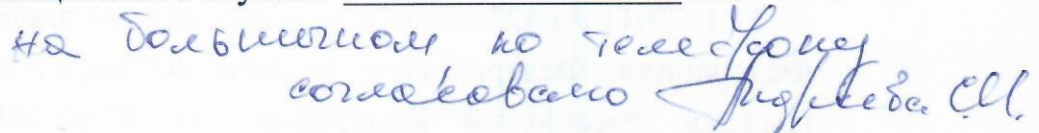 на больничном по телефону
согласовано Андреева С.И.